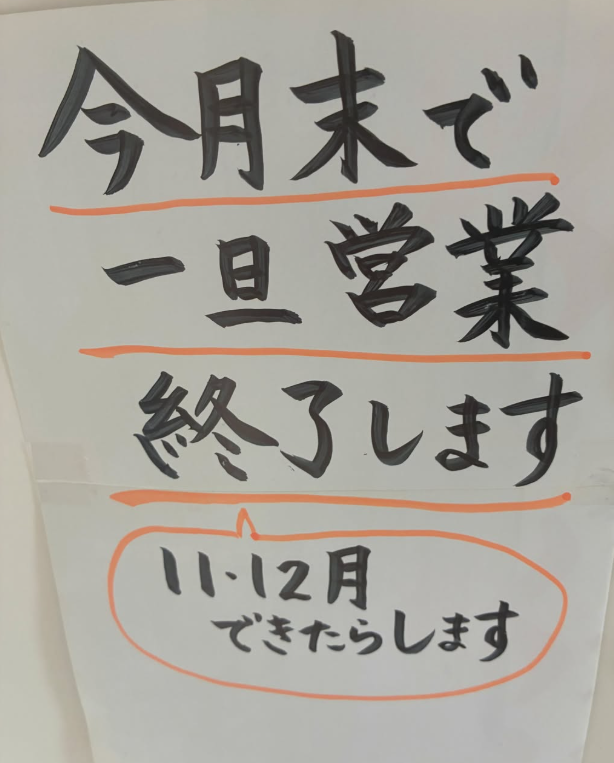 今月末で
一旦営業
終了します
11・12月
できたらします